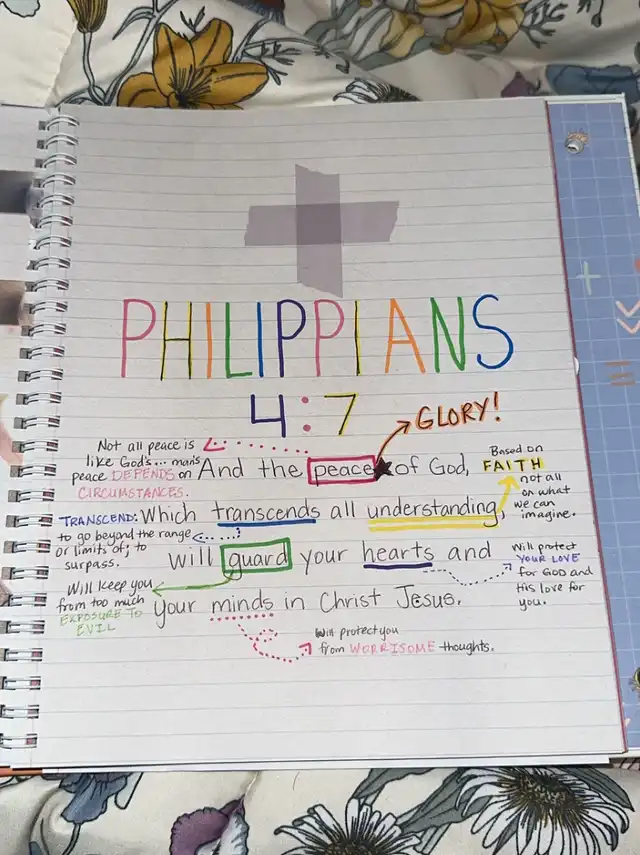 PHILIPPIANS
4:7
GLORY!
Not all peace is
like God's... man's
peace DEPENDS on
CIRCUMSTANCES.
And the peace of God,
Based on
FAITH
not all
on what
we can
imagine.
TRANSCEND:
to go beyond the range
or limits of; to
surpass.
Which transcends all understanding,
will guard your hearts and
Will protect
YOUR LOVE
for GOD and
His love for
you.
Will keep you
from too much
EXPOSURE TO
EVIL
your minds in Christ Jesus.
Will protect you
from WORRISOME thoughts.